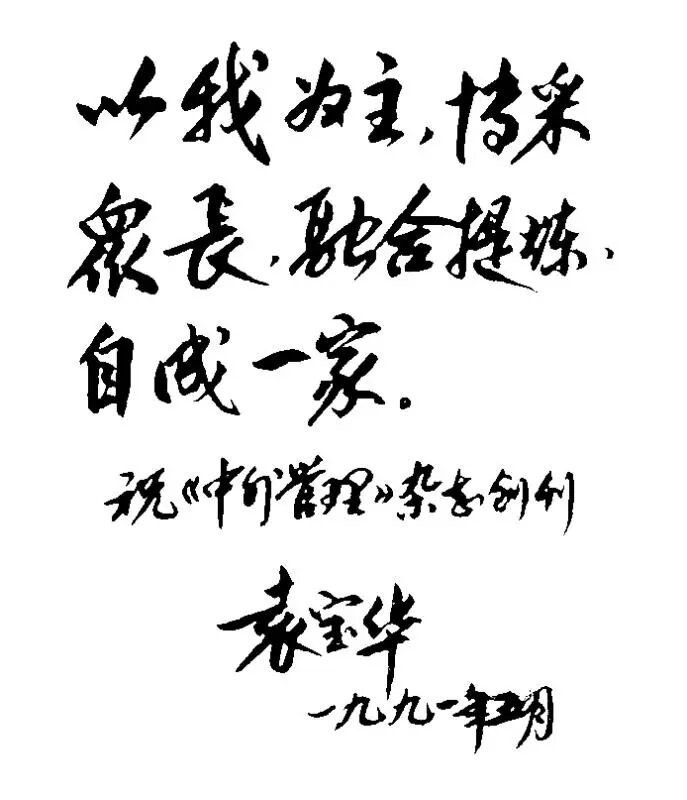 以我为主,博采
眾長,融合提炼,
自成一家。
祝《中外管理》杂志创刊
袁宝华
一九九一年五月